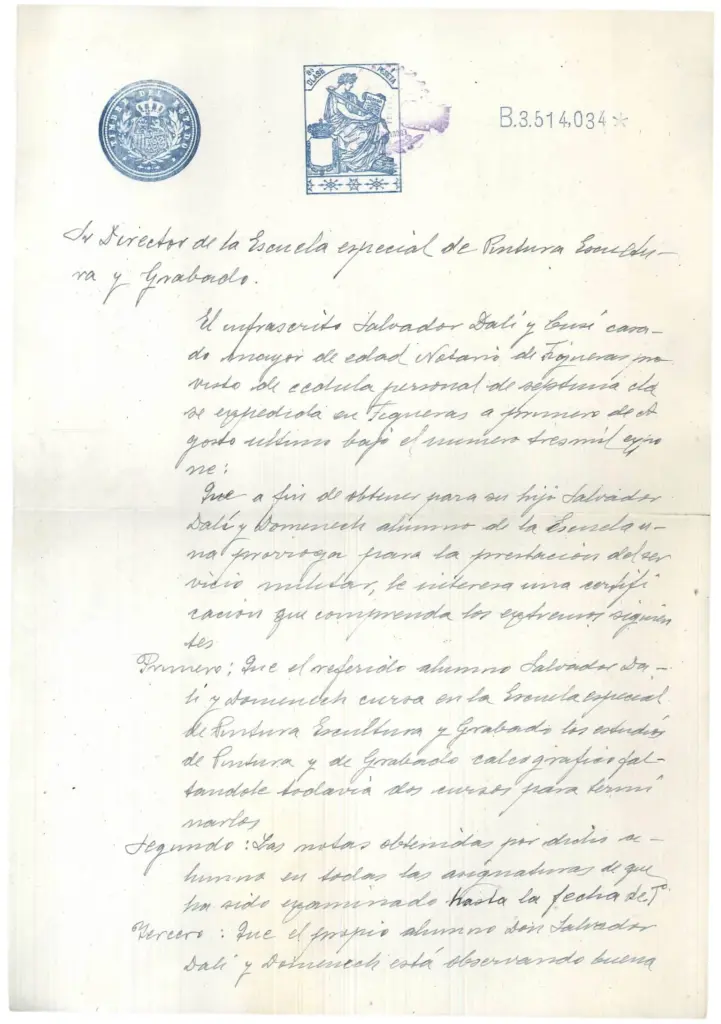 TIMBRE DEL ESTADO
8ª CLASE PESETA
B.3.514,034*
Sr Director de la Escuela especial de Pintura Escultu-
ra y Grabado.
El infrascrito Salvador Dalí y Cusí casa-
do mayor de edad Notario de Figueras pro
visto de cedula personal de septima cla
se expedida en Figueras a primero de A
gosto ultimo bajo el numero tres mil expo
ne:
Que a fin de obtener para su hijo Salvador
Dalí y Domenech alumno de la Escuela u-
na prorroga para la prestación del ser
vicio militar, le interesa una certifi
cación que comprenda los extremos siguien
tes
Primero: Que el referido alumno Salvador Da-
lí y Domenech cursa en la Escuela especial
de Pintura Escultura y Grabado los estudios
de Pintura y de Grabado calcografico fal-
tandole todavia dos cursos para termi
narlos
Segundo: Las notas obtenidas por dicho a-
lumno en todas las asignaturas de que
ha sido examinado hasta la fecha
Tercero: Que el propio alumno Don Salvador
Dalí y Domenech está observando buena